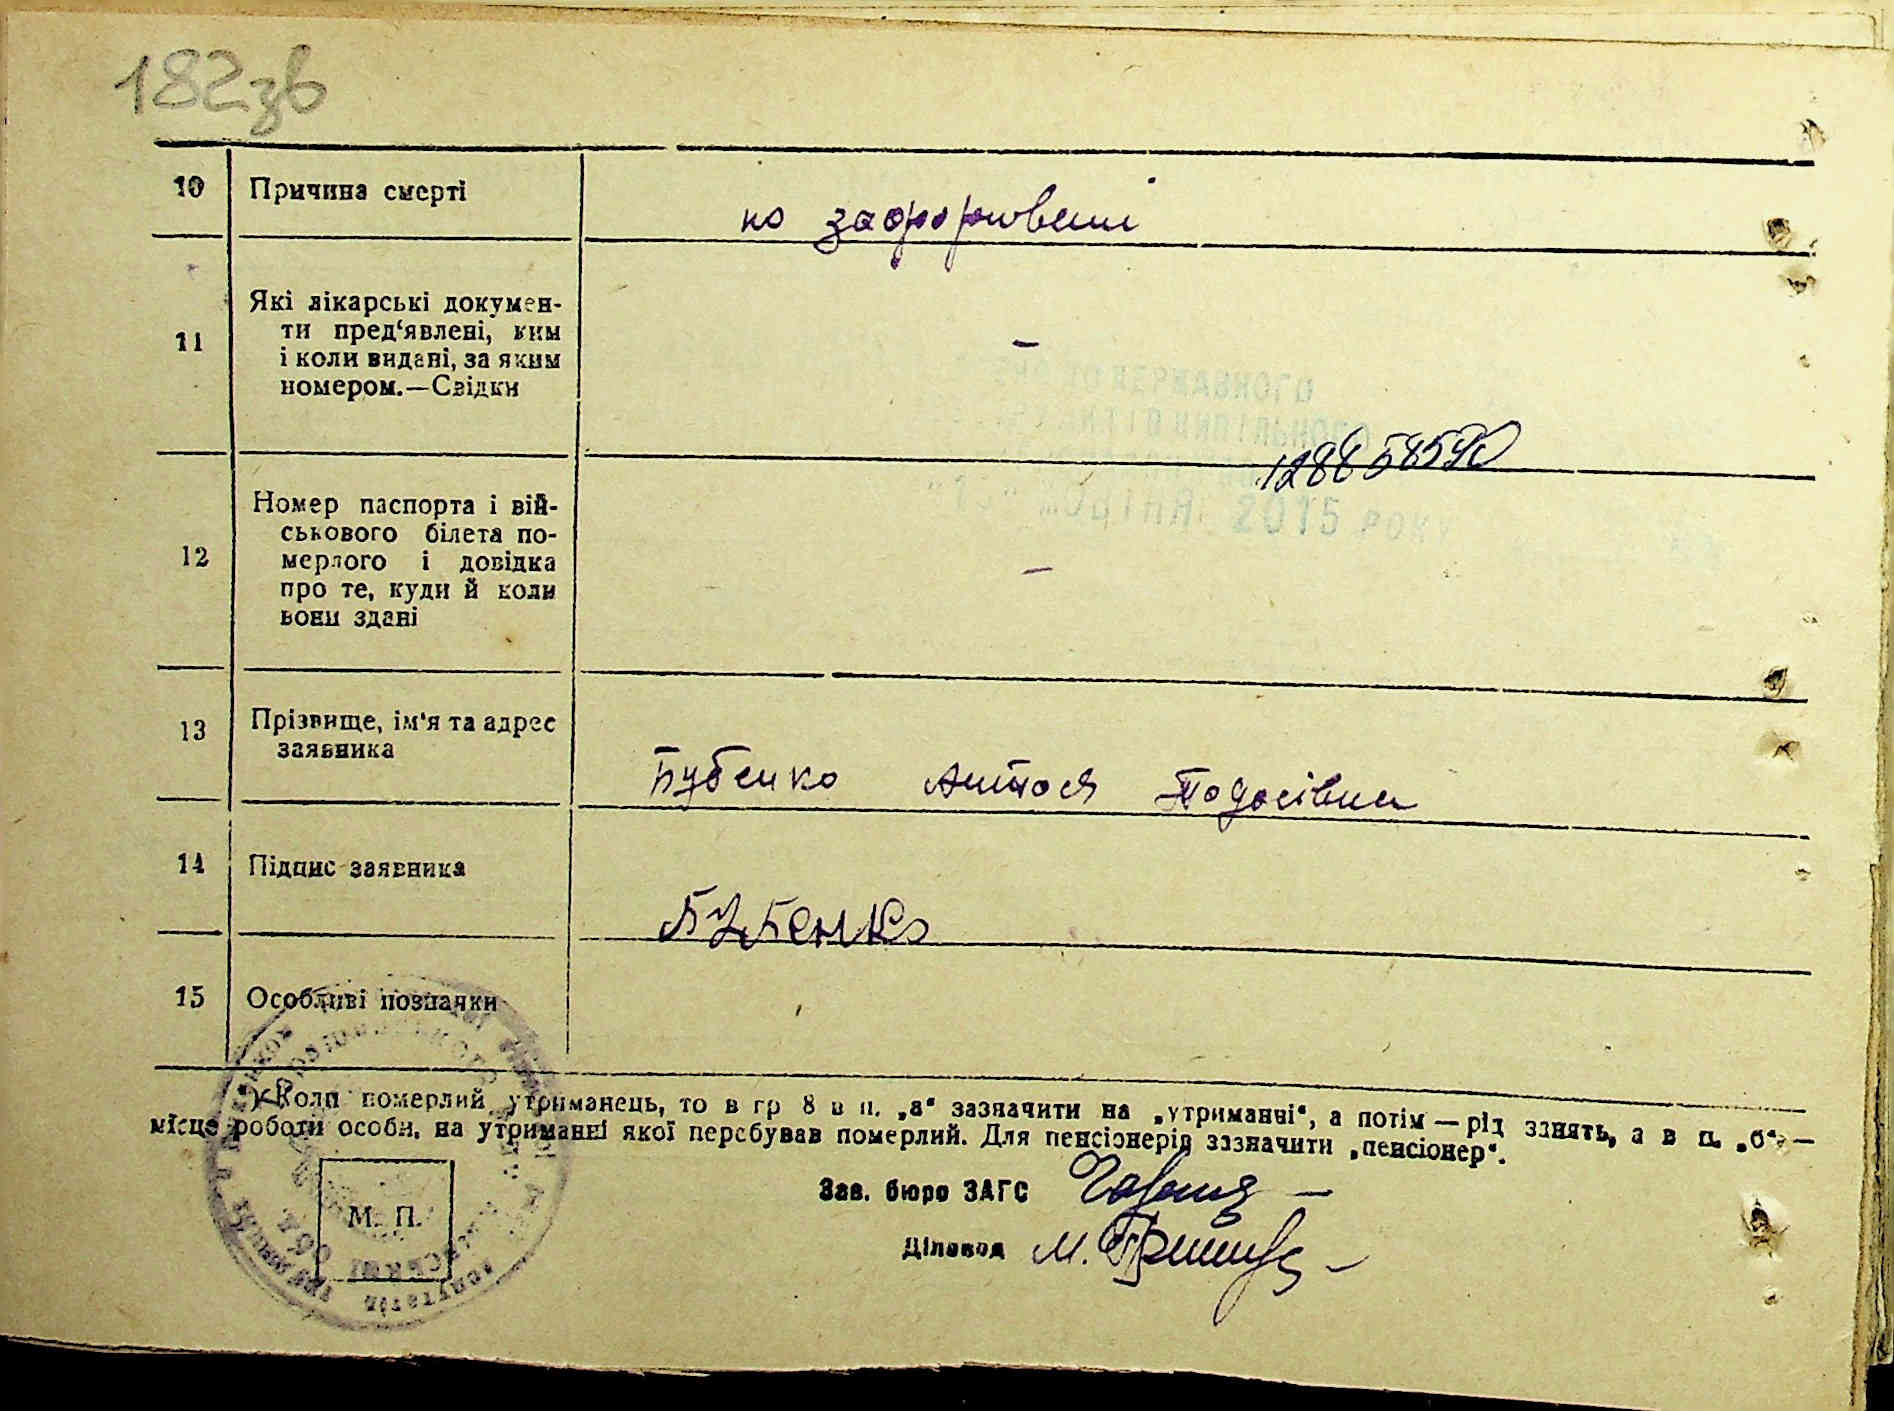 182зв
10 Причина смерті
11 Які лікарські докумен-
ти пред‘явлені, ким
і коли видані, за яким
номером.—Свідки
—
ДЕРЖАВНОГО
2015 РОКУ
12 Номер паспорта і вій-
ськового білета по-
мерлого і довідка
про те, куди й коли
вони здані
—
13 Прізвище, ім‘я та адрес
заявника
Бубенко Антося Тодосівна
14 Підпис заявника
Бубенко
15 Особливі позначки
*) Коли померлий утриманець, то в гр 8 в п. „а“ зазначити на „утриманні“, а потім — рід занять, а в п. „б“ —
місце роботи особи, на утриманні якої перебував померлий. Для пенсіонерів зазначити „пенсіонер“.
М. П.
Зав. бюро ЗАГС
Діловод М.